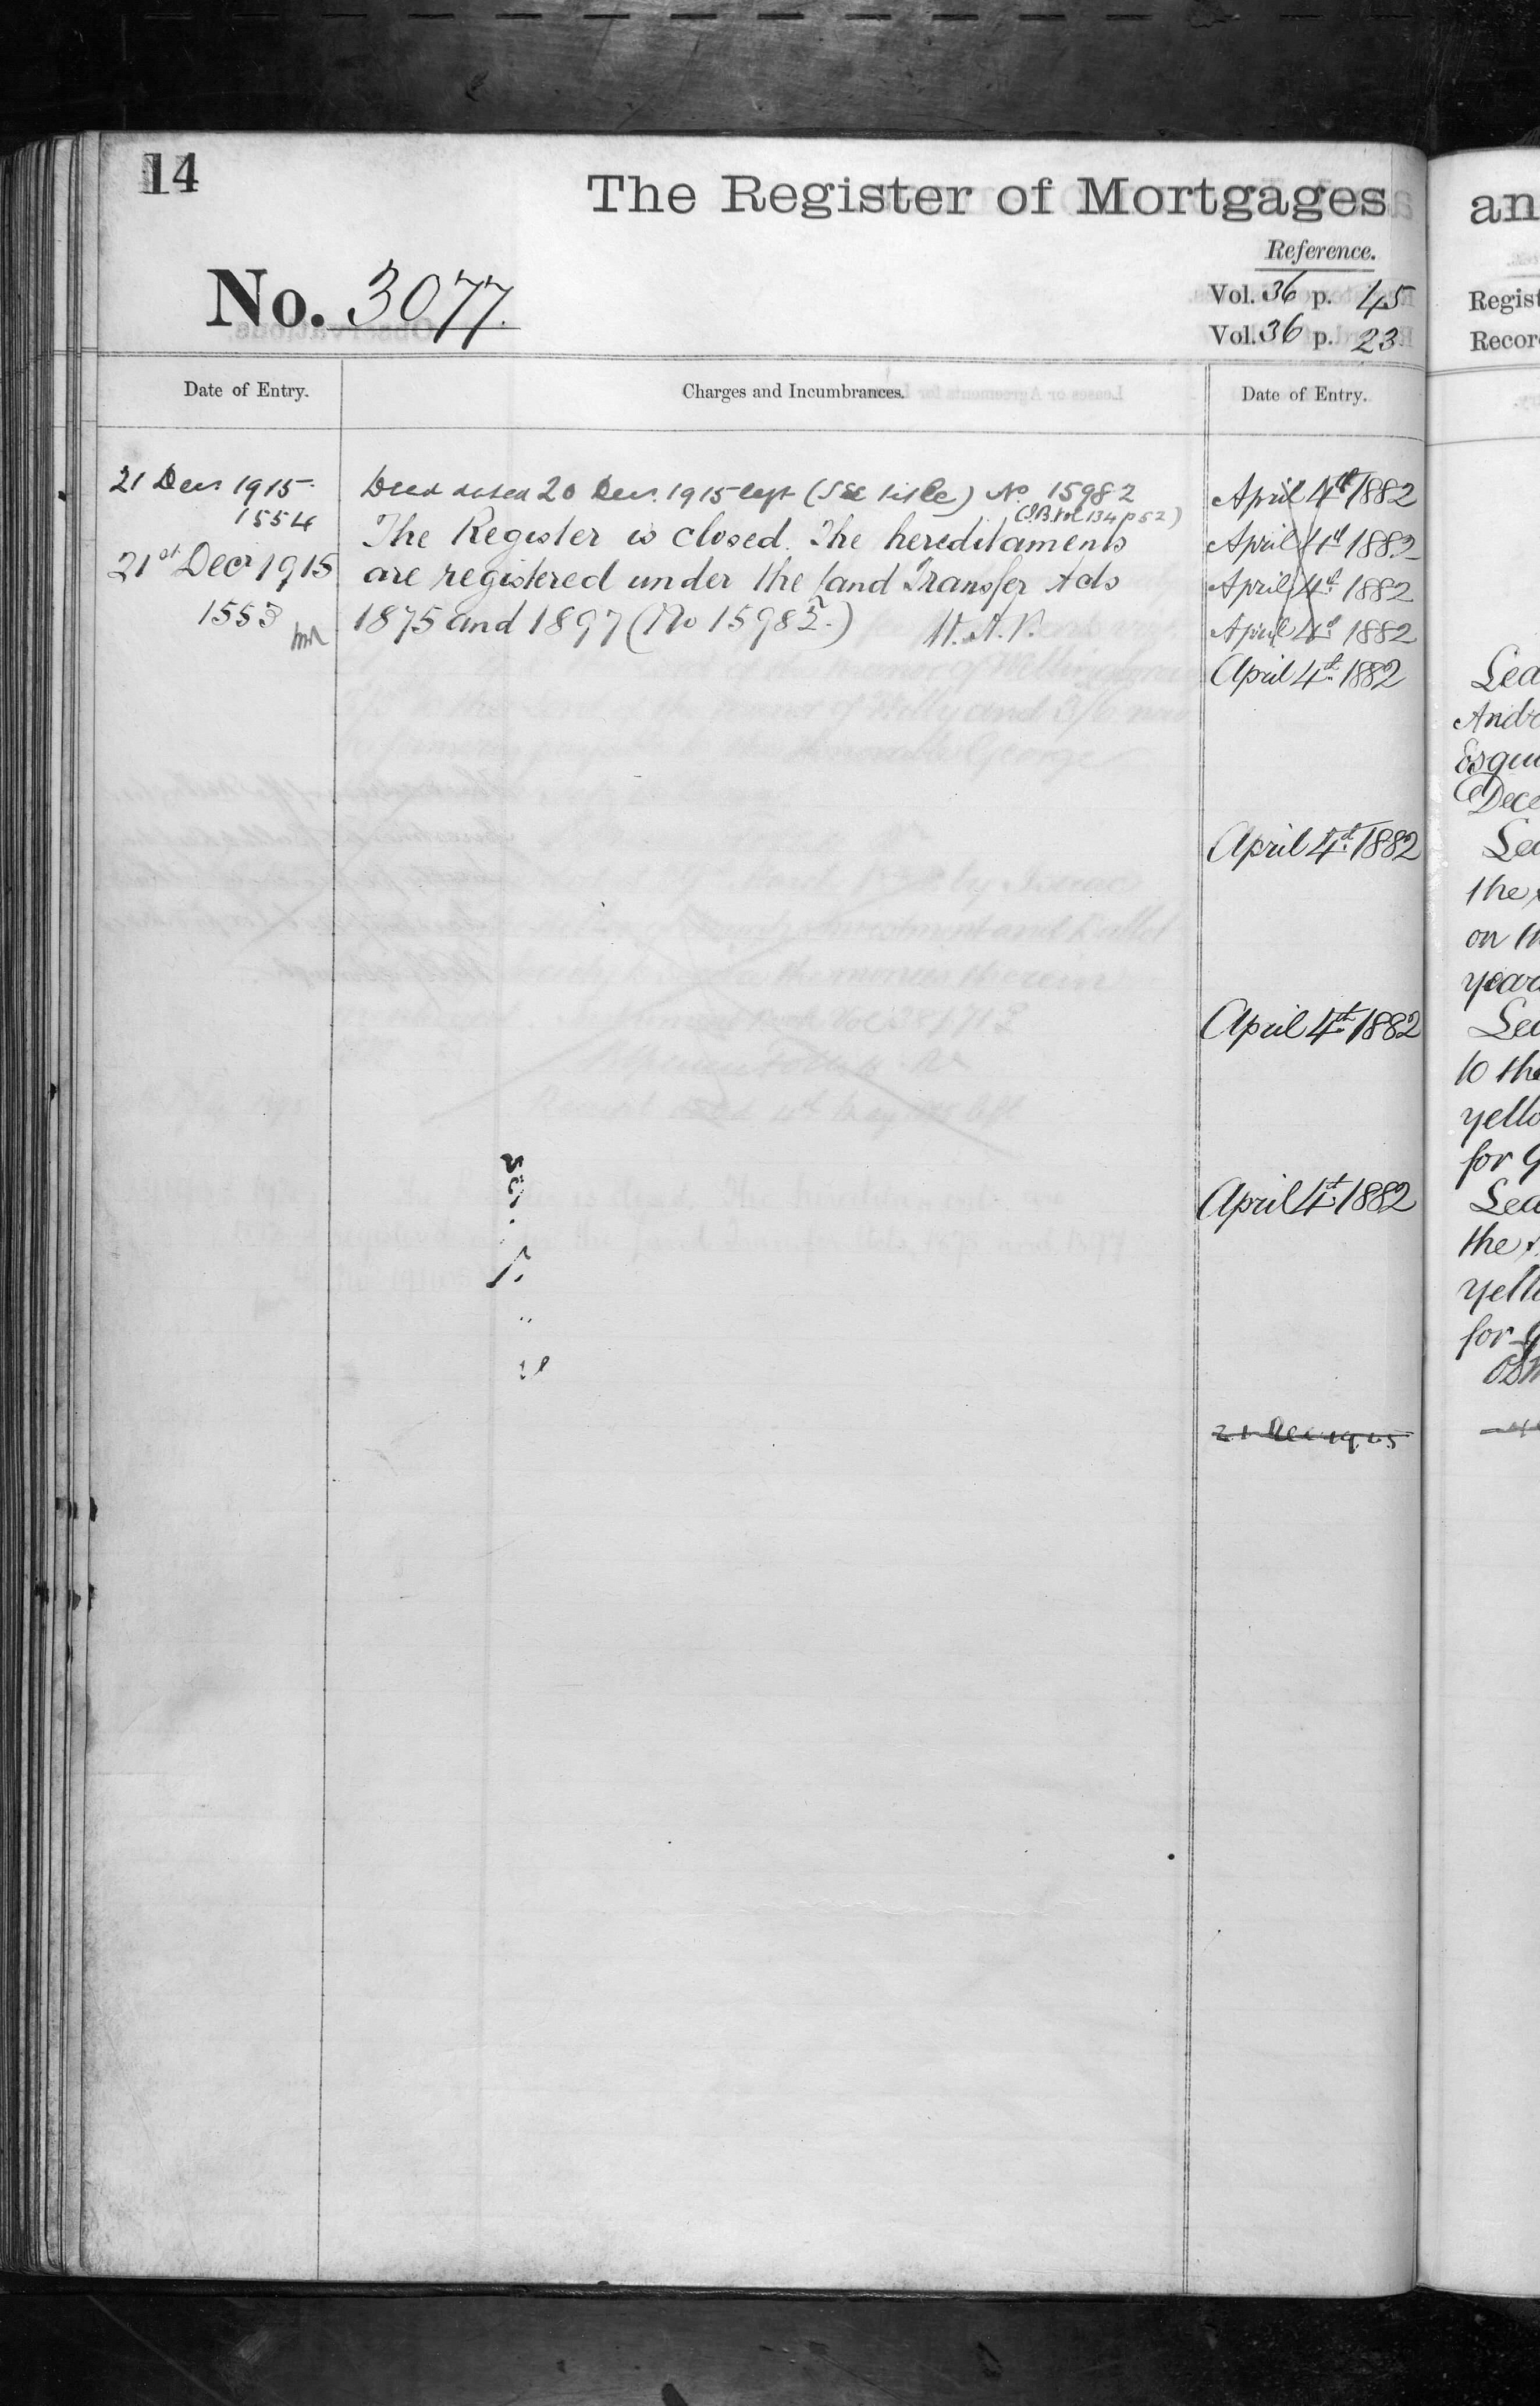 14
The Register of Mortgages
an
Reference.
No. 3077.
Vol. 36 p. 45
Vol. 36 p. 23
Regist
Recor
Date of Entry.
Charges and Incumbrances.
Date of Entry.
21 Decr 1915
1554
Deed dated 20 Decr. 1915 (See title) No 15982
Vol 134 p 52)
21st Decr 1915
1553
The Register is closed. The hereditaments
are registered under the Land Transfer Acts
1875 and 1897 (No 15982.)
April 4th 1882
April 4th 1882
April 4th 1882
April 4th 1882
April 4th 1882
April 4th 1882
April 4th 1882
April 4th 1882
21 Dec 1915
Lea
Andr
Esqui
Dece
Lea
the
on th
years
Lea
to the
yello
for G
Lea
the
yello
for G